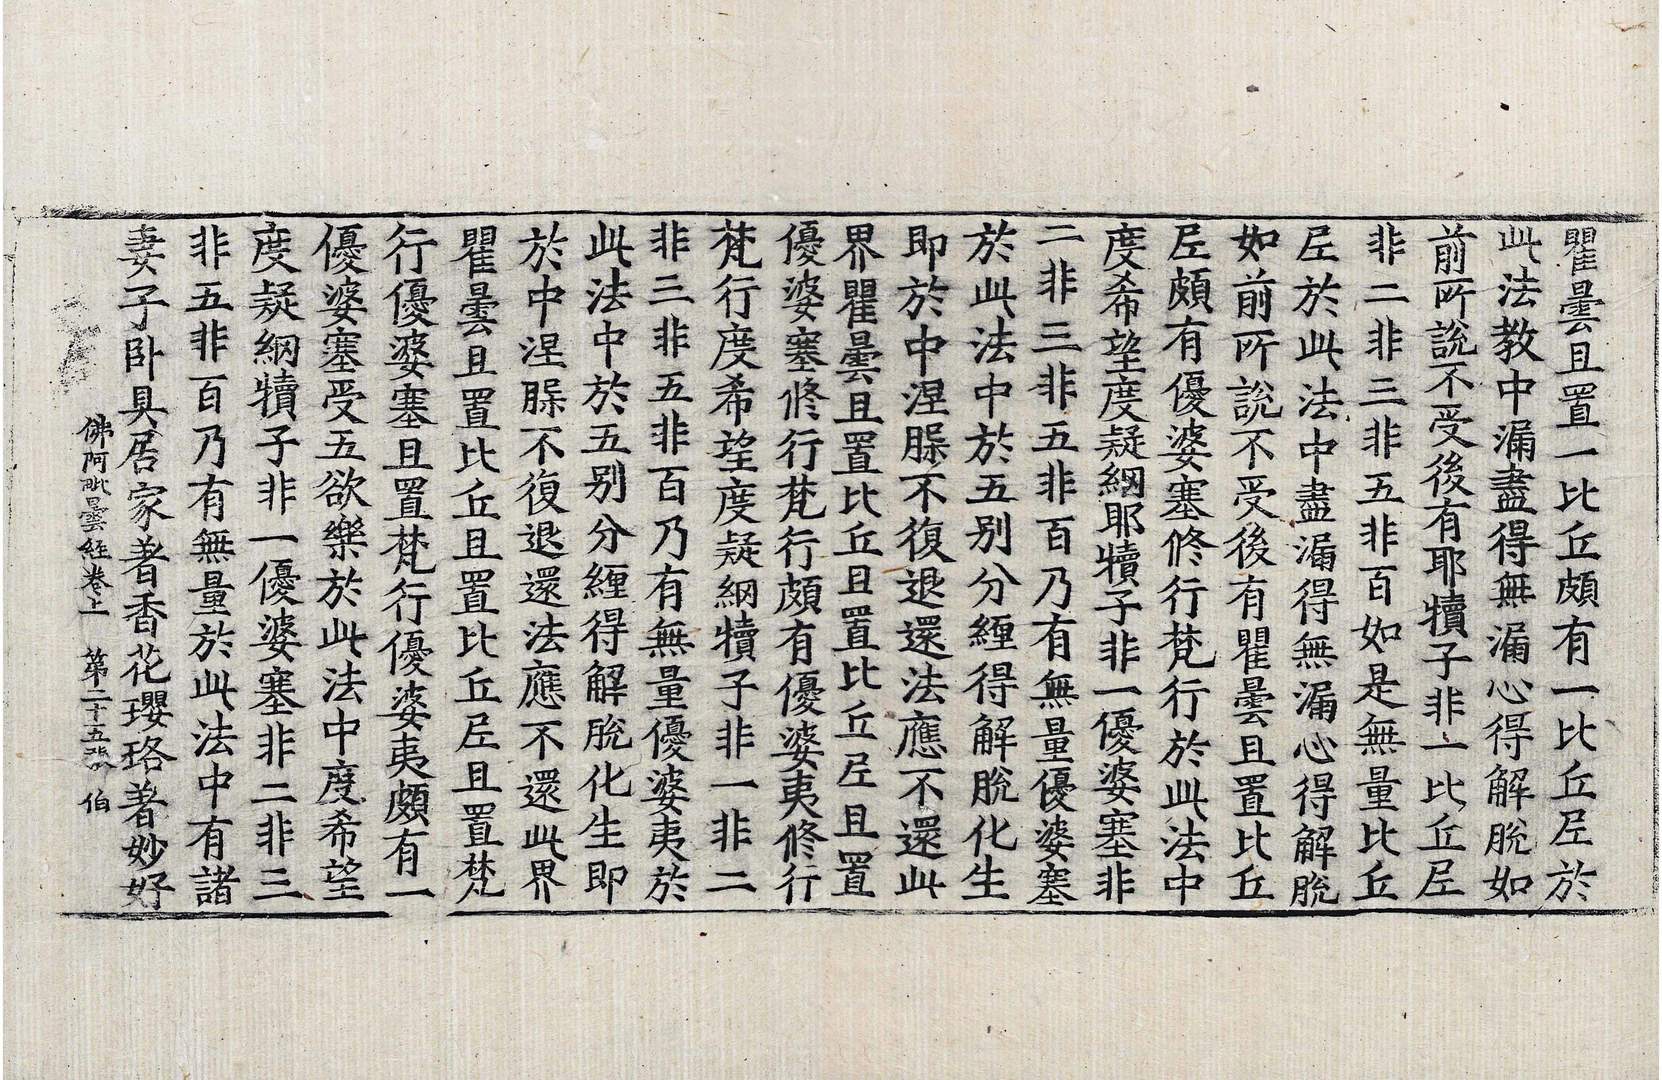 瞿曇且置一比丘頗有一比丘尼於
此法教中漏盡得無漏心得解脫如
前所說不受後有耶犢子非一比丘尼
非二非三非五非百如是無量比丘
尼於此法中盡漏得無漏心得解脫
如前所說不受後有瞿曇且置比丘
尼頗有優婆塞修行梵行於此法中
度希望度疑網耶犢子非一優婆塞非
二非三非五非百乃有無量優婆塞
於此法中於五別分纏得解脫化生
即於中涅槃不復退還法應不還此
界瞿曇且置比丘且置比丘尼且置
優婆塞修行梵行頗有優婆夷修行
梵行度希望度疑網犢子非一非二
非三非五非百乃有無量優婆夷於
此法中於五別分纏得解脫化生即
於中涅槃不復退還法應不還此界
瞿曇且置比丘且置比丘尼且置梵
行優婆塞且置梵行優婆夷頗有一
優婆塞受五欲樂於此法中度希望
度疑網犢子非一優婆塞非二非三
非五非百乃有無量於此法中有諸
妻子臥具居家著香花瓔珞著妙好
佛阿毗曇經卷上 第二十五張 伯